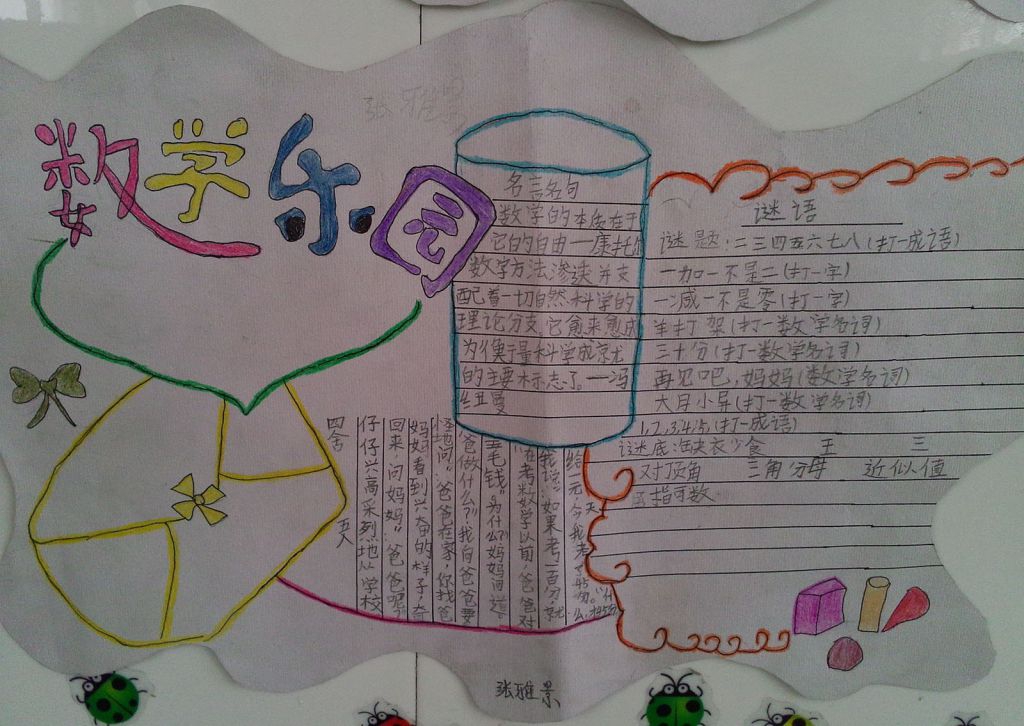 数学乐园
张雅景
名言名句
数学的本质在于
它的自由——康托尔
数学方法渗读并支
配着一切自然科学的
理论分支。它愈来愈成
为衡量科学成就
的主要标志了。——冯
纽曼
谜语
谜题:二三四五六七八(打一成语)
一加一不是二(打一字)
一减一不是零(打一字)
羊打架(打一数学名词)
三十分(打一数学名词)
再见吧,妈妈(数学名词)
大月小月(打一数学名词)
1,2,3,4,5,(打一成语)
谜底:缺衣少食 王 三
对顶角 三角 分母 近似值
屈指可数
四舍
五入
仔仔兴高采烈地从学校
回来,问妈妈:"爸爸呢?"
妈妈看到兴奋的样子,奇
怪地问:"爸爸在家,你找爸
爸做什么?""我向爸爸要
五毛钱。""为什么?"妈妈问道
"在考数学以前,爸爸对
我说:'如果考一百分,就
给元,今天我考了
张雅景